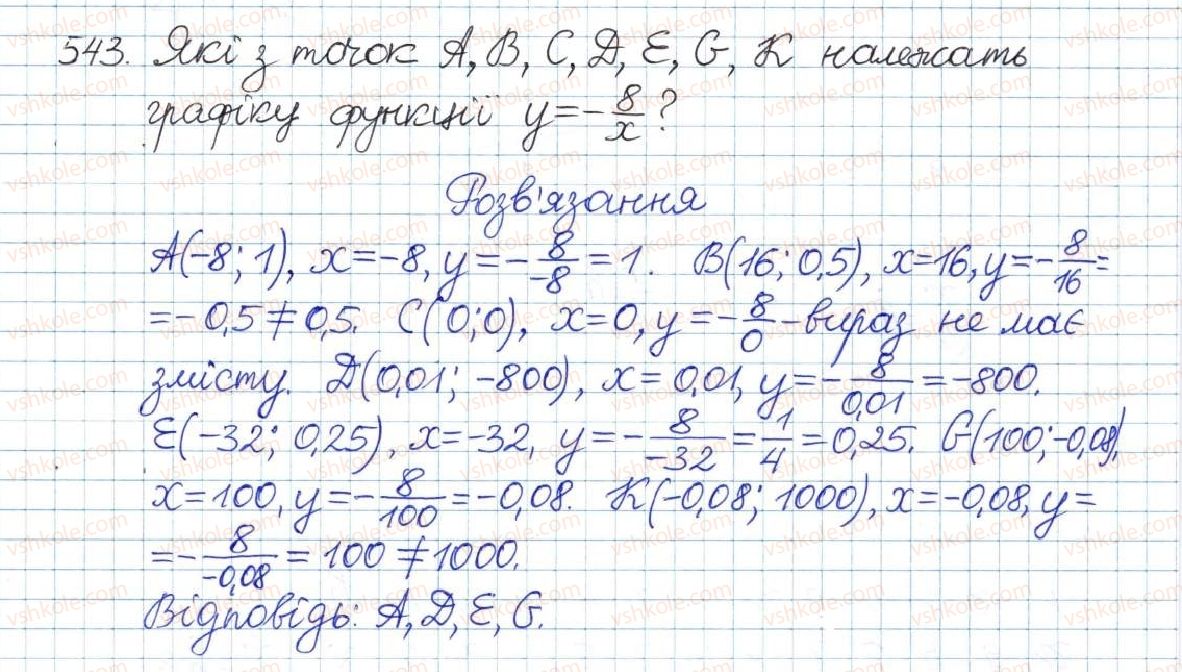 543. Які з точок A, B, C, D, E, G, K належать
графіку функції y=-8/x?
Розв'язання
A(-8; 1), x=-8, y=-8/-8=1. B(16; 0,5), x=16, y=-8/16=
=-0,5≠0,5. C(0;0), x=0, y=-8/0-вираз не має
змісту. D(0,01; -800), x=0,01, y=-8/0,01=-800.
E(-32; 0,25), x=-32, y=-8/-32=1/4=0,25. G(100;-0,08),
x=100, y=-8/100=-0,08. K(-0,08; 1000), x=-0,08, y=
=-8/-0,08=100≠1000.
Відповідь: A, D, E, G.